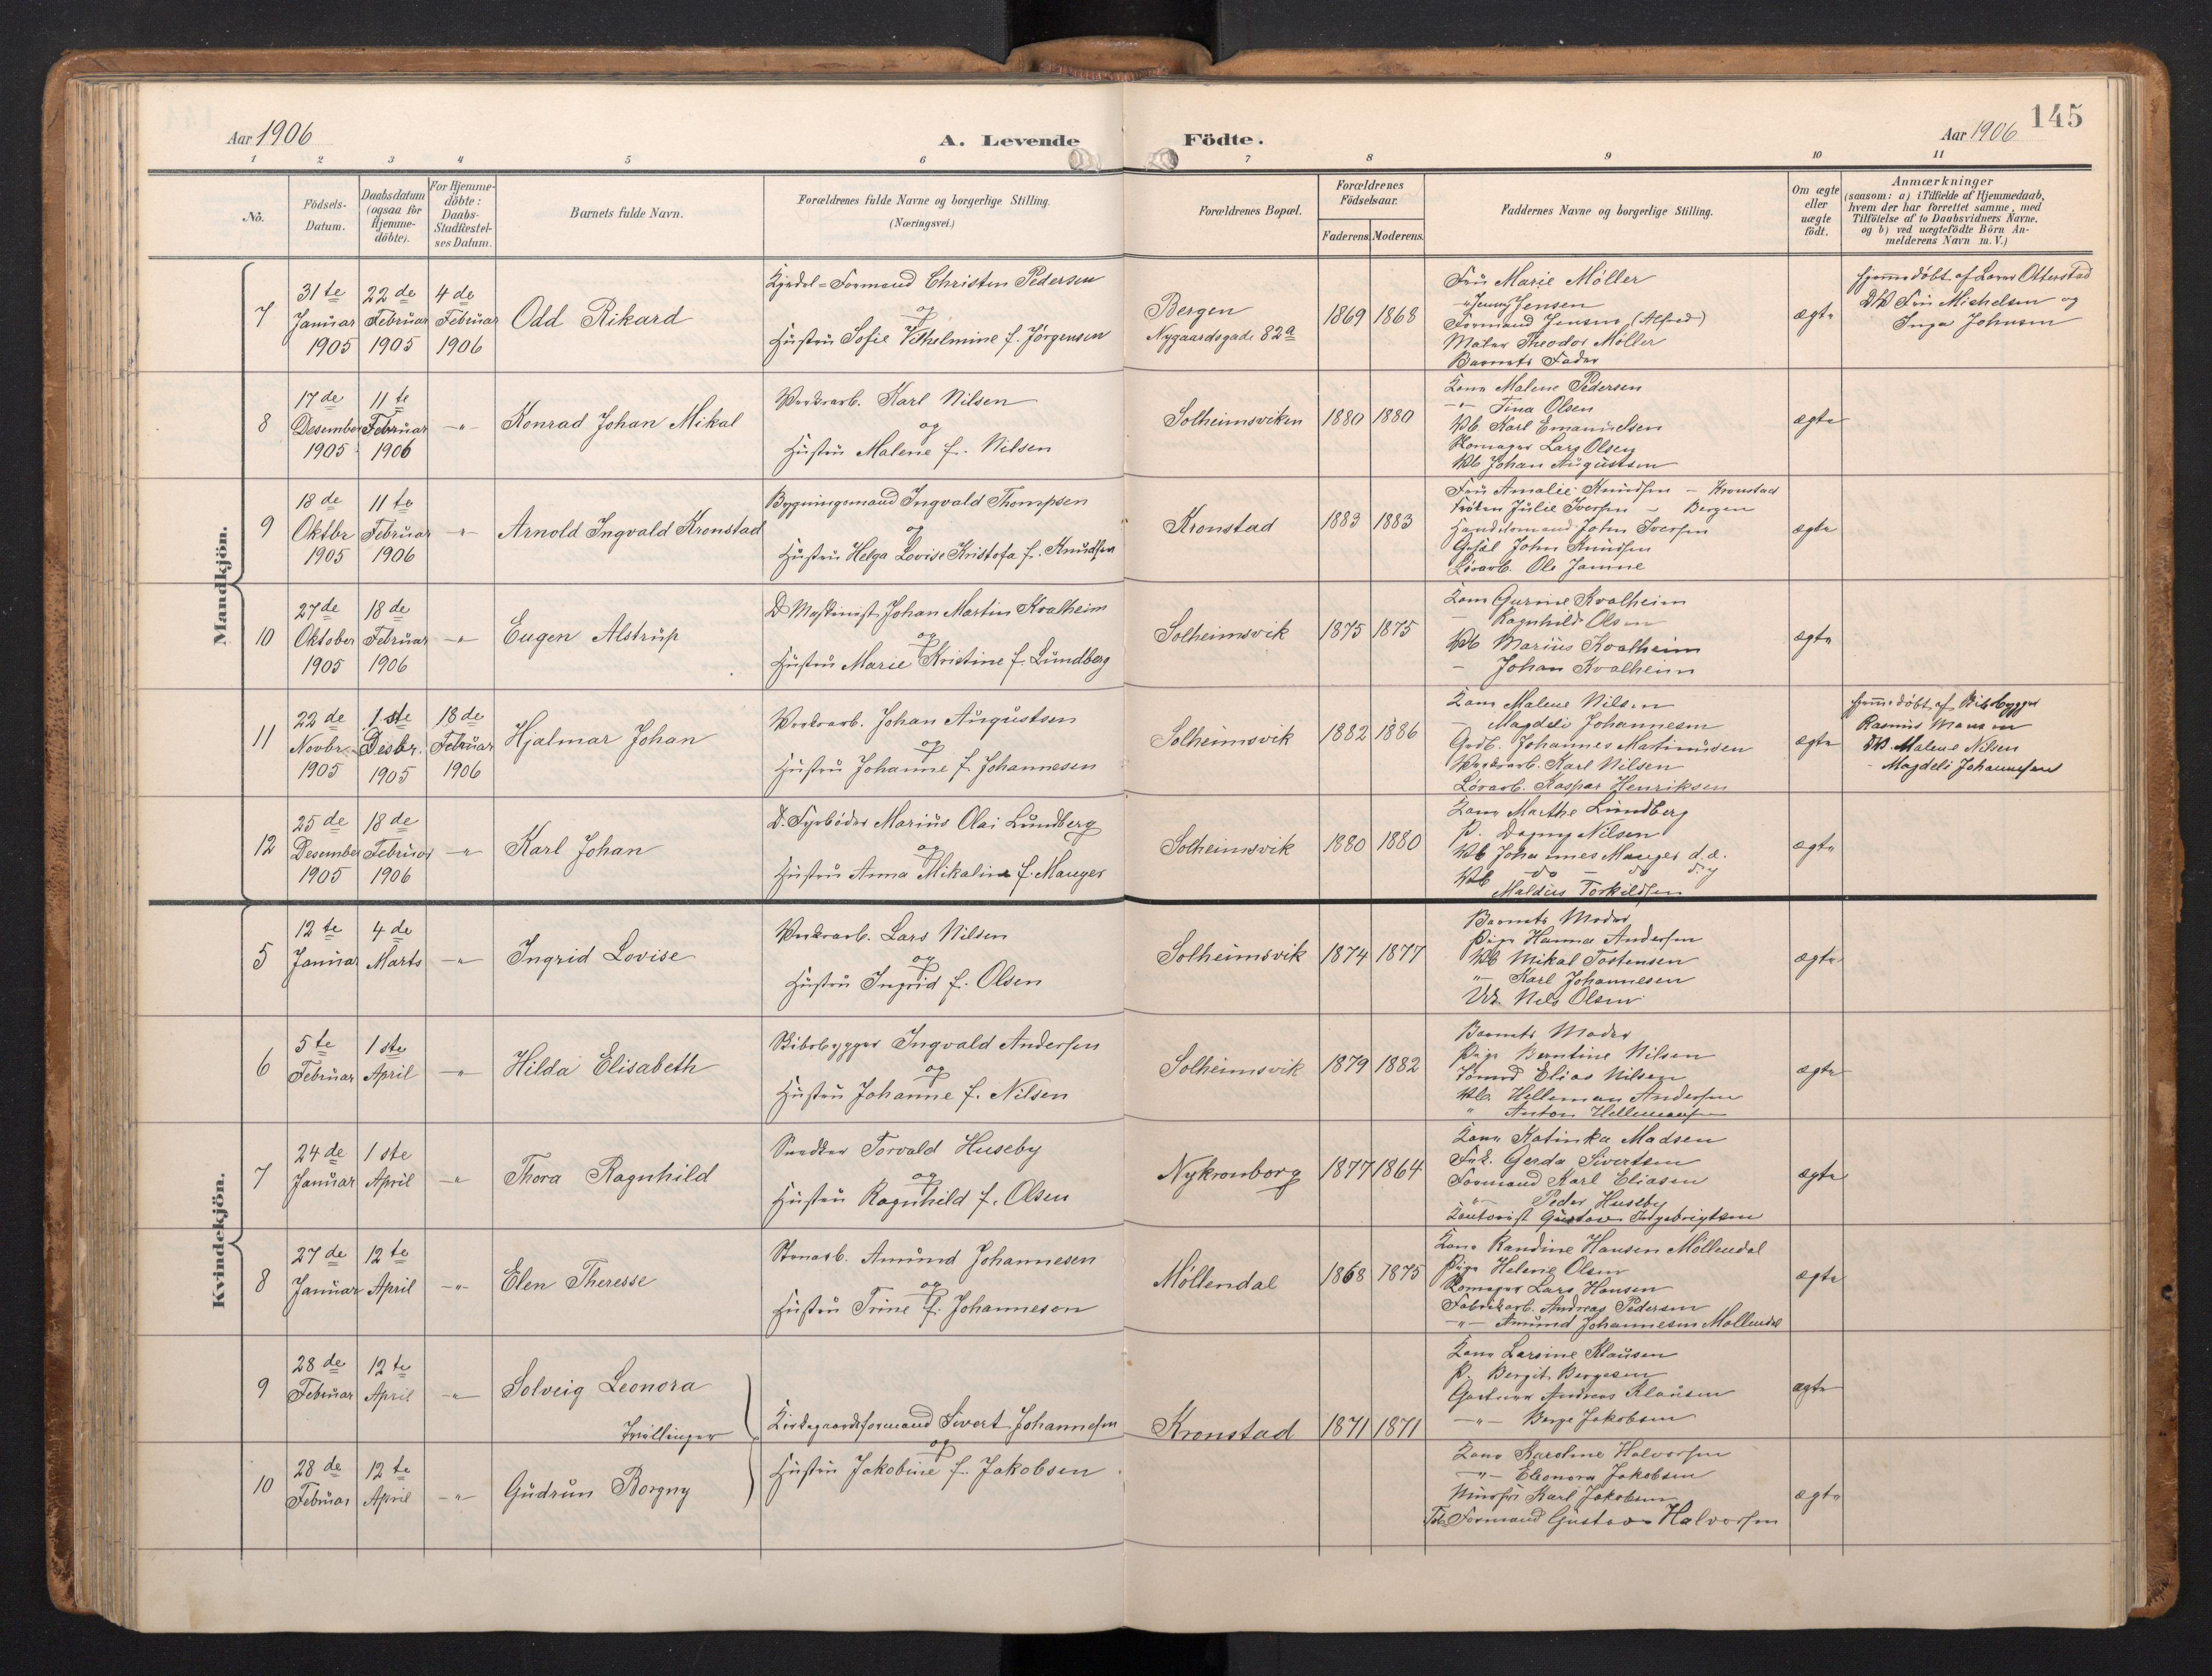 Aar 1906
A. Levende
Födte.
Aar 1906
145
1 2 3 4 5 6 7 8 9 10 11
Nô.
Födsels-
Datum.
Daabsdatum
(ogsaa for
Hjemme-
döbte).
For Hjemme-
döbte:
Daabs-
Stadfestel-
ses Datum.
Barnets fulde Navn.
Forældrenes fulde Navne og borgerlige Stilling.
(Næringsvei.)
Forældrenes Bopæl.
Forældrenes
Födselsaar.
Faderens. Moderens.
Faddernes Navne og borgerlige Stilling.
Om ægte
eller
uægte
födt.
Anmærkninger
(saasom: a) i Tilfælde af Hjemmedaab,
hvem der har forrettet samme, med
Tilföielse af to Daabsvidners Navne,
og b) ved uægtefödte Börn An-
melderens Navn m.V.)
Mandkjön.
7
31te
Januar
1905
22de
Februar
1905
4de
Februar
1906
Odd Rikard
Formand Christen Pedersen
og
Hustru Sofie Vilhelmine f. Jörgensen
Bergen
Nygaardsgade 82a
1869 1868
Fru Marie Møller
" Jenny Jensen
Formand Jensen (Alfred)
Maler Theodor Møller
Barnets Fader
ægte
Hjemmedøbt af Lærer Otterstad
DV Fru Michelsen og
Inga Johnsen
8
17de
Desember
1905
11te
Februar
1906
-"-
Konrad Johan Mikal
Verksarb. Karl Nilsen
og
Hustru Malene f. Nilsen
Solheimsviken
1880 1880
Kone Malene Pedersen
-"- Tina Olsen
Vb Karl Emanuelsen
Skomager Lars Olsen
Vb Johan Augustsen
ægte
9
18de
Oktbr
1905
11te
Februar
1906
-"-
Arnold Ingvald Kronstad
Bygningsmand Ingvald Thompsen
og
Hustru Helga Lovise Kristofa f. Knudsen
Kronstad
1883 1883
Fru Amalie Knudsen - Kronstad
Fröken Julie Iversen - Bergen
Handelsmand John Iversen
John Knudsen
Ole Jamne
ægte
10
27de
Oktober
1905
18de
Februar
1906
-"-
Eugen Alstrup
D Maskinist Johan Martin Kvalheim
og
Hustru Marie Kristine f. Lundberg
Solheimsvik
1875 1875
Kone Gurine Kvalheim
- Ragnhild Olsen
Vb Marius Kvalheim
- Johan Kvalheim
ægte
11
22de
Novbr
1905
1ste
Desbr.
1905
18de
Februar
1906
Hjalmar Johan
Verksarb. Johan Augustsen
og
Hustru Johanne f. Johannesen
Solheimsvik
1882 1886
Kone Malene Nilsen
- Magdeli Johannesen
Grdb. Johannes Martinusen
Verksarb. Karl Nilsen
Løsarb. Kaspar Henriksen
ægte
Hjemmedøbt af Bibygger
Rasmus Monsen
DV. Malene Nilsen
- Magdeli Johannesen
12
25de
Desember
1905
18de
Februar
1906
-"-
Karl Johan
D. Fyrbøder Marius Olai Lundberg
og
Hustru Anna Mikaline f. Mauger
Solheimsvik
1880 1880
Kone Marthe Lundberg
P. Dagny Nilsen
Vb Johannes Mauger d.æ.
Vb -do- - do d.y
Maldius Torkildsen
ægte
Kvindekjön.
5
12te
Januar
4de
Marts
-"-
Ingrid Lovise
Verksarb. Lars Nilsen
og
Hustru Ingrid f. Olsen
Solheimsvik
1874 1877
Barnets Moder
Pige Hanna Andersen
Vb Mikal Tostensen
"- Karl Johannesen
Nels Olsen
ægte
6
5te
Februar
1ste
April
-"-
Hilda Elisabeth
Skibsbygger Ingvald Andersen
og
Hustru Johanne f. Nilsen
Solheimsvik
1879 1882
Barnets Moder
Pige Berntine Nilsen
Elias Nilsen
Vb Helleman Andersen
" Anton Hellemansen
ægte
7
24de
Januar
1ste
April
-"-
Thora Ragnhild
Snedker Torvald Huseby
og
Hustru Ragnhild f. Olsen
Nykronborg
1877 1864
Kone Katinka Madsen
Frk. Gerda Sivertsen
Formand Karl Eliasen
"- Peder Huseby
Kontorist Gustav Ingebrigtsen
ægte
8
27de
Januar
12te
April
-"-
Elen Theresse
Stenarb. Amund Johannesen
og
Hustru Trine f. Johannesen
Møllendal
1868 1875
Kone Randine Hansen Møllendal
Pige Helene Olsen
Skomager Lars Hansen
Fabrikarb. Andreas Pedersen
-"- Amund Johannesen Møllendal
ægte
9
28de
Februar
12te
April
-"-
Solveig Leonora
Tvillinger
Kirkegaardsformand Sivert Johannesen
og
Hustru Jakobine f. Jakobsen
Kronstad
1871 1871
Kone Larsine Klausen
P. Bergit Børgesen
Gartner Andreas Klausen
-"- Børge Jakobsen
ægte
10
28de
Februar
12te
April
-"-
Gudrun Borgny
Kone Karoline Halvorsen
-"- Eleonora Jakobsen
Karl Jakobsen
Formand Gustav Halvorsen
ægte